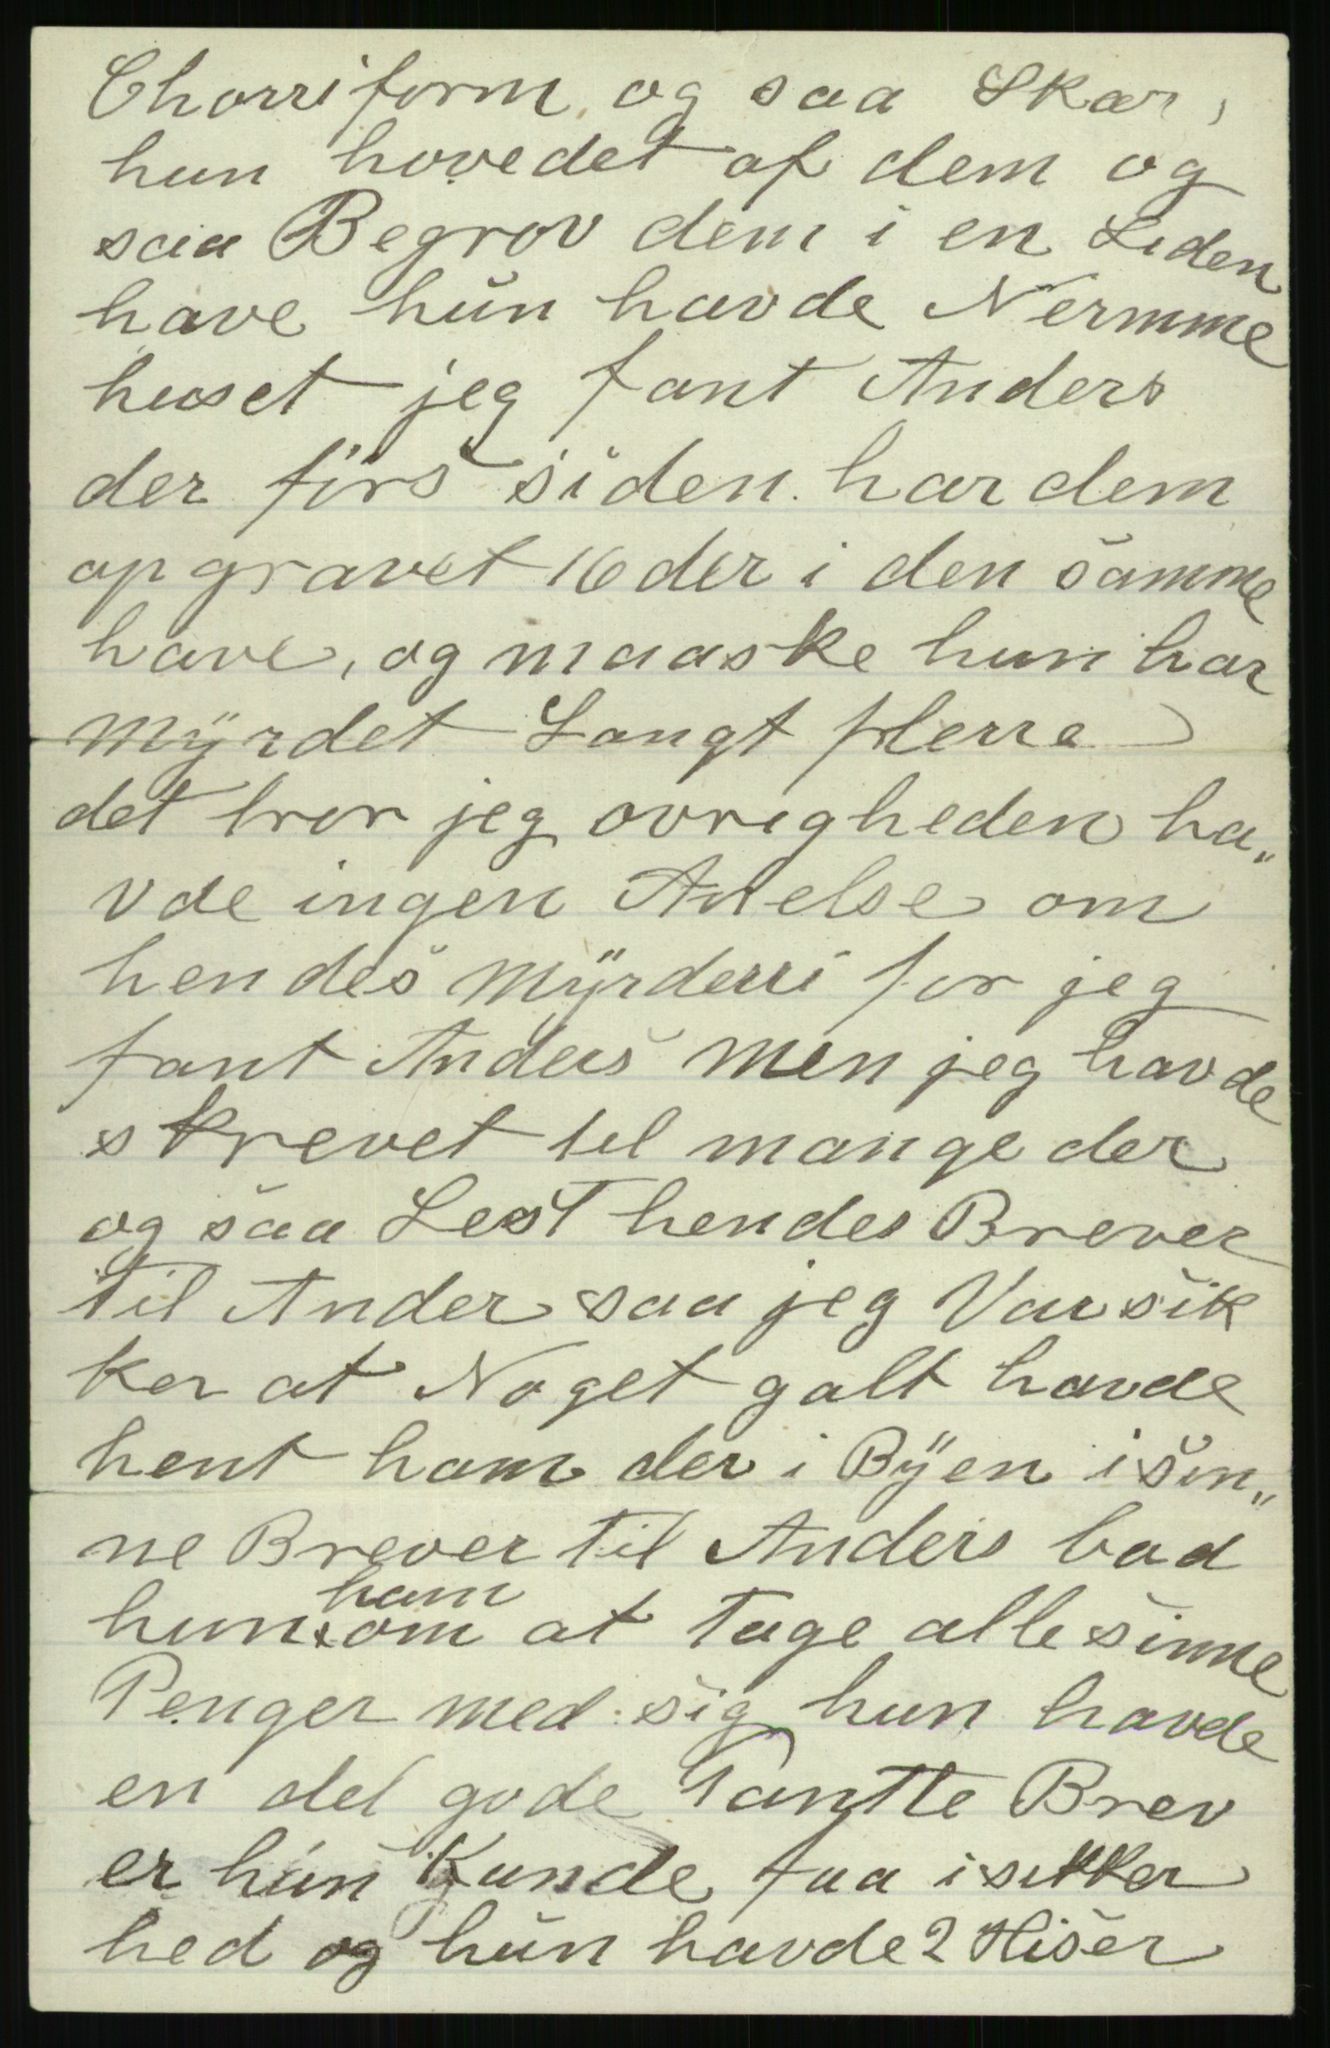 Chorriform, og saa Skar,
hun hovedet af dem og
saa Begrov dem i en Liden
have hun havde Nermme
huset jeg fant Anders
der förs siden har dem
op gravet 16 der i den samme
have, og maaske hun har
Myrdet Langt flerre
det tror jeg ovrigheden ha„
vde ingen Anelse om
hendes Myrderri for jeg
fant Anders Men jeg havde
skrevet til mange der
og saa Lest hendes Brever
til Ander saa jeg Var sik
ker at Noget galt havde
hent ham der i Byen i sin„
ne Brever til Anders bad
hun ham om at Tage alle sinne
Penger med sig hun havde
en del gode Pantte Brev
er hun Kunde faa i sikker
hed og hun havde 2 Hiser